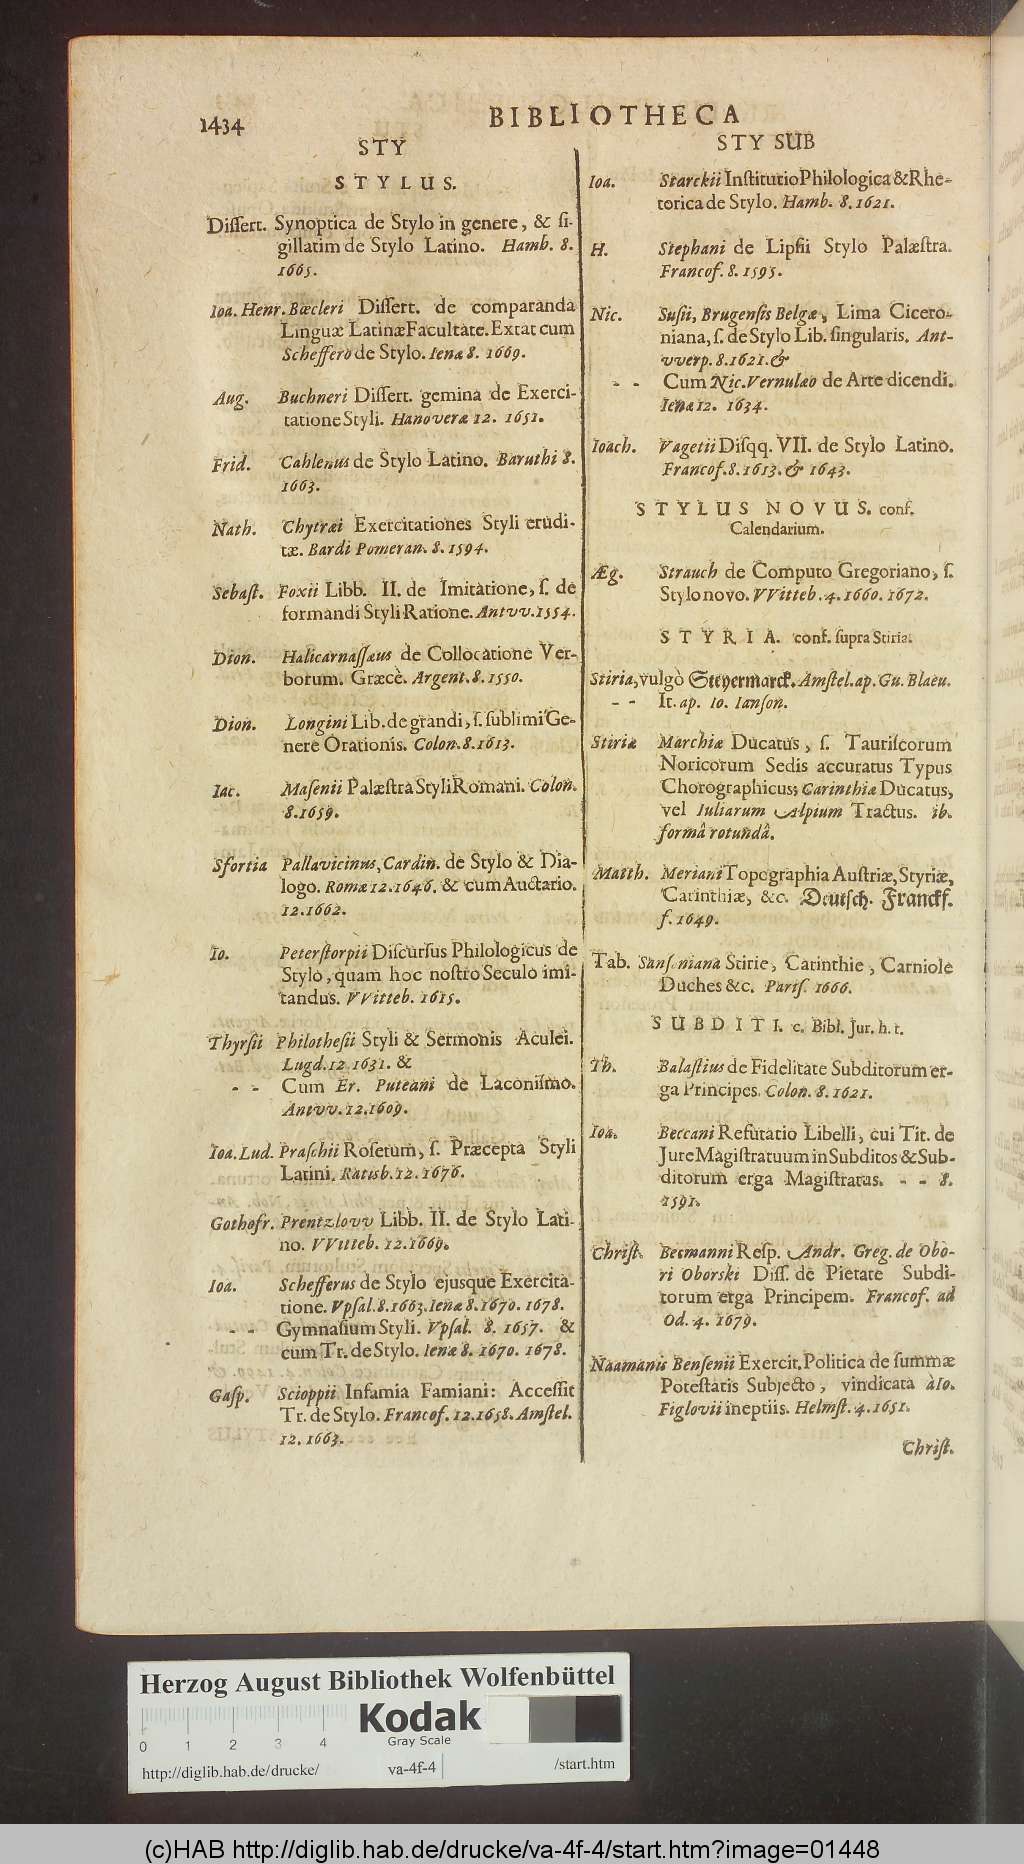 1434
BIBLIOTHECA
STY
STYLUS.
Dissert. Synoptica de Stylo in genere, & si-
gillatim de Stylo Latino. Hamb. 8.
1665.
Ioa. Henr. Bœcleri Dissert. de comparanda
Linguæ Latinæ Facultate. Extat cum
Scheffero de Stylo. Ienæ 8. 1669.
Aug. Buchneri Dissert. gemina de Exerci-
tatione Styli. Hanoveræ 12. 1651.
Frid. Cahlenus de Stylo Latino. Baruthi 8.
1663.
Nath. Chytræi Exercitationes Styli erudi-
tæ. Bardi Pomeran. 8. 1594.
Sebast. Foxii Libb. II. de Imitatione, s. de
formandi Styli Ratione. Antvv. 1554.
Dion. Halicarnassæus de Collocatione Ver-
borum. Græcè. Argent. 8. 1550.
Dion. Longini Lib. de grandi, s. sublimi Ge-
nere Orationis. Colon. 8. 1613.
Iac. Masenii Palæstra Styli Romani. Colon.
8. 1659.
Sfortia Pallavicinus, Cardin. de Stylo & Dia-
logo. Romæ 12. 1646. & cum Auctario.
12. 1662.
Io. Peterstorpii Discursus Philologicus de
Stylo, quam hoc nostro Seculo imi-
tandus. VVitteb. 1615.
Thyrsii Philothesii Styli & Sermonis Aculei.
Lugd. 12. 1631. &
- - Cum Er. Puteani de Laconismo.
Antvv. 12. 1609.
Ioa. Lud. Praschii Rosetum, s. Præcepta Styli
Latini. Ratisb. 12. 1676.
Gothofr. Prentzlovv Libb. II. de Stylo Lati-
no. VVitteb. 12. 1669.
Ioa. Schefferus de Stylo ejusque Exercita-
tione. Vpsal. 8. 1663. Ienæ 8. 1670. 1678.
- - Gymnasium Styli. Vpsal. 8. 1657. &
cum Tr. de Stylo. Ienæ 8. 1670. 1678.
Gasp. Scioppii Infamia Famiani: Accessit
Tr. de Stylo. Francof. 12. 1658. Amstel.
12. 1663.
STY SUB
Ioa. Starckii Institutio Philologica & Rhe-
torica de Stylo. Hamb. 8. 1621.
H. Stephani de Lipsii Stylo Palæstra.
Francof. 8. 1595.
Nic. Susii, Brugensis Belgæ, Lima Cicero-
niana, s. de Stylo Lib. singularis. Ant-
vverp. 8. 1621. &
- - Cum Nic. Vernulæo de Arte dicendi.
Ienæ 12. 1634.
Ioach. Vagetii Disqq. VII. de Stylo Latino.
Francof. 8. 1613. & 1643.
STYLUS NOVUS. conf.
Calendarium.
Æg. Strauch de Computo Gregoriano, s.
Stylo novo. VVitteb. 4. 1660. 1672.
STYRIA. conf. supra Stiria.
Stiria, vulgò Steyermarck. Amstel. ap. Gu. Blaeu.
- - It. ap. Io. Ianson.
Stiriæ Marchiæ Ducatus, s. Tauriscorum
Noricorum Sedis accuratus Typus
Chorographicus; Carinthiæ Ducatus,
vel Iuliarum Alpium Tractus. ib.
formâ rotundâ.
Matth. Meriani Topographia Austriæ, Styriæ,
Carinthiæ, &c. Deutsch. Franckf.
f. 1649.
Tab. Sansoniana Stirie, Carinthie, Carniole
Duches &c. Paris. 1666.
SUBDITI. c. Bibl. Jur. h. t.
Th. Balastius de Fidelitate Subditorum er-
ga Principes. Colon. 8. 1621.
Ioa. Beccani Refutatio Libelli, cui Tit. de
Jure Magistratuum in Subditos & Sub-
ditorum erga Magistratus. - - 8.
1591.
Christ. Becmanni Resp. Andr. Greg. de Obo-
ri Oborski Diss. de Pietate Subdi-
torum erga Principem. Francof. ad
Od. 4. 1679.
Naamanis Bensenii Exercit. Politica de summæ
Potestatis Subjecto, vindicata à Io.
Figlovii ineptiis. Helmst. 4. 1651.
Christ.
Herzog August Bibliothek Wolfenbüttel
Kodak
Gray Scale
0 1 2 3 4
http://diglib.hab.de/drucke/ va-4f-4 /start.htm
(c)HAB http://diglib.hab.de/drucke/va-4f-4/start.htm?image=01448